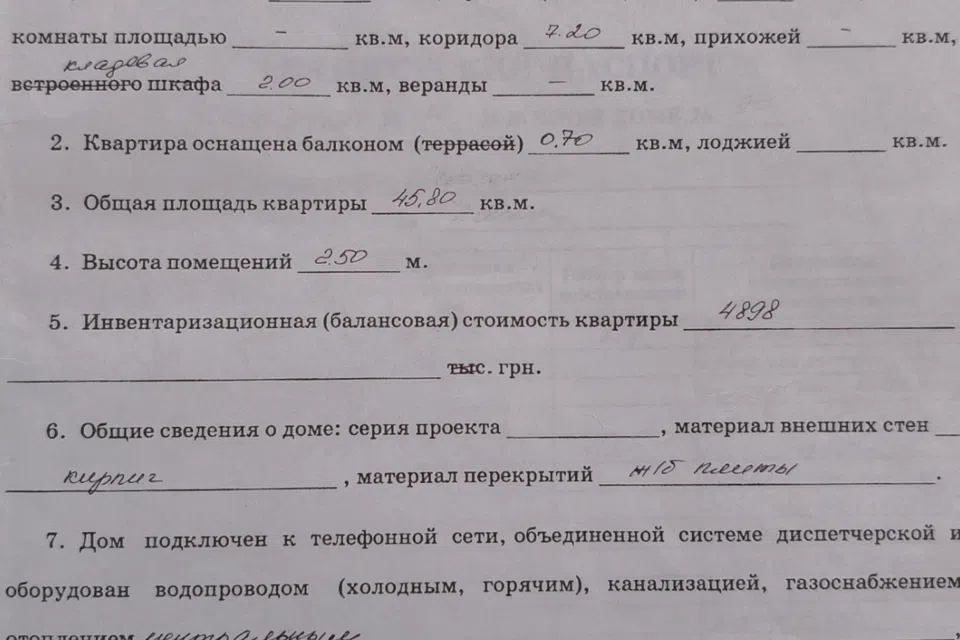 комнаты площадью – кв.м, коридора 7.20 кв.м, прихожей – кв.м,
кладовая
встроенного шкафа 2.00 кв.м, веранды – кв.м.
2. Квартира оснащена балконом (террасой) 0,70 кв.м, лоджией ______ кв.м.
3. Общая площадь квартиры 45,80 кв.м.
4. Высота помещений 2.50 м.
5. Инвентаризационная (балансовая) стоимость квартиры 4898
тыс. грн.
6. Общие сведения о доме: серия проекта ______, материал внешних стен
кирпич, материал перекрытий ж/б плиты.
7. Дом подключен к телефонной сети, объединенной системе диспетчерской и
оборудован водопроводом (холодным, горячим), канализацией, газоснабжением
отоплением центральным